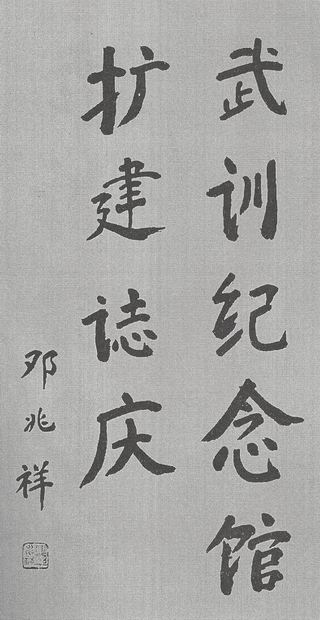 武训纪念馆
扩建誌庆
邓兆祥